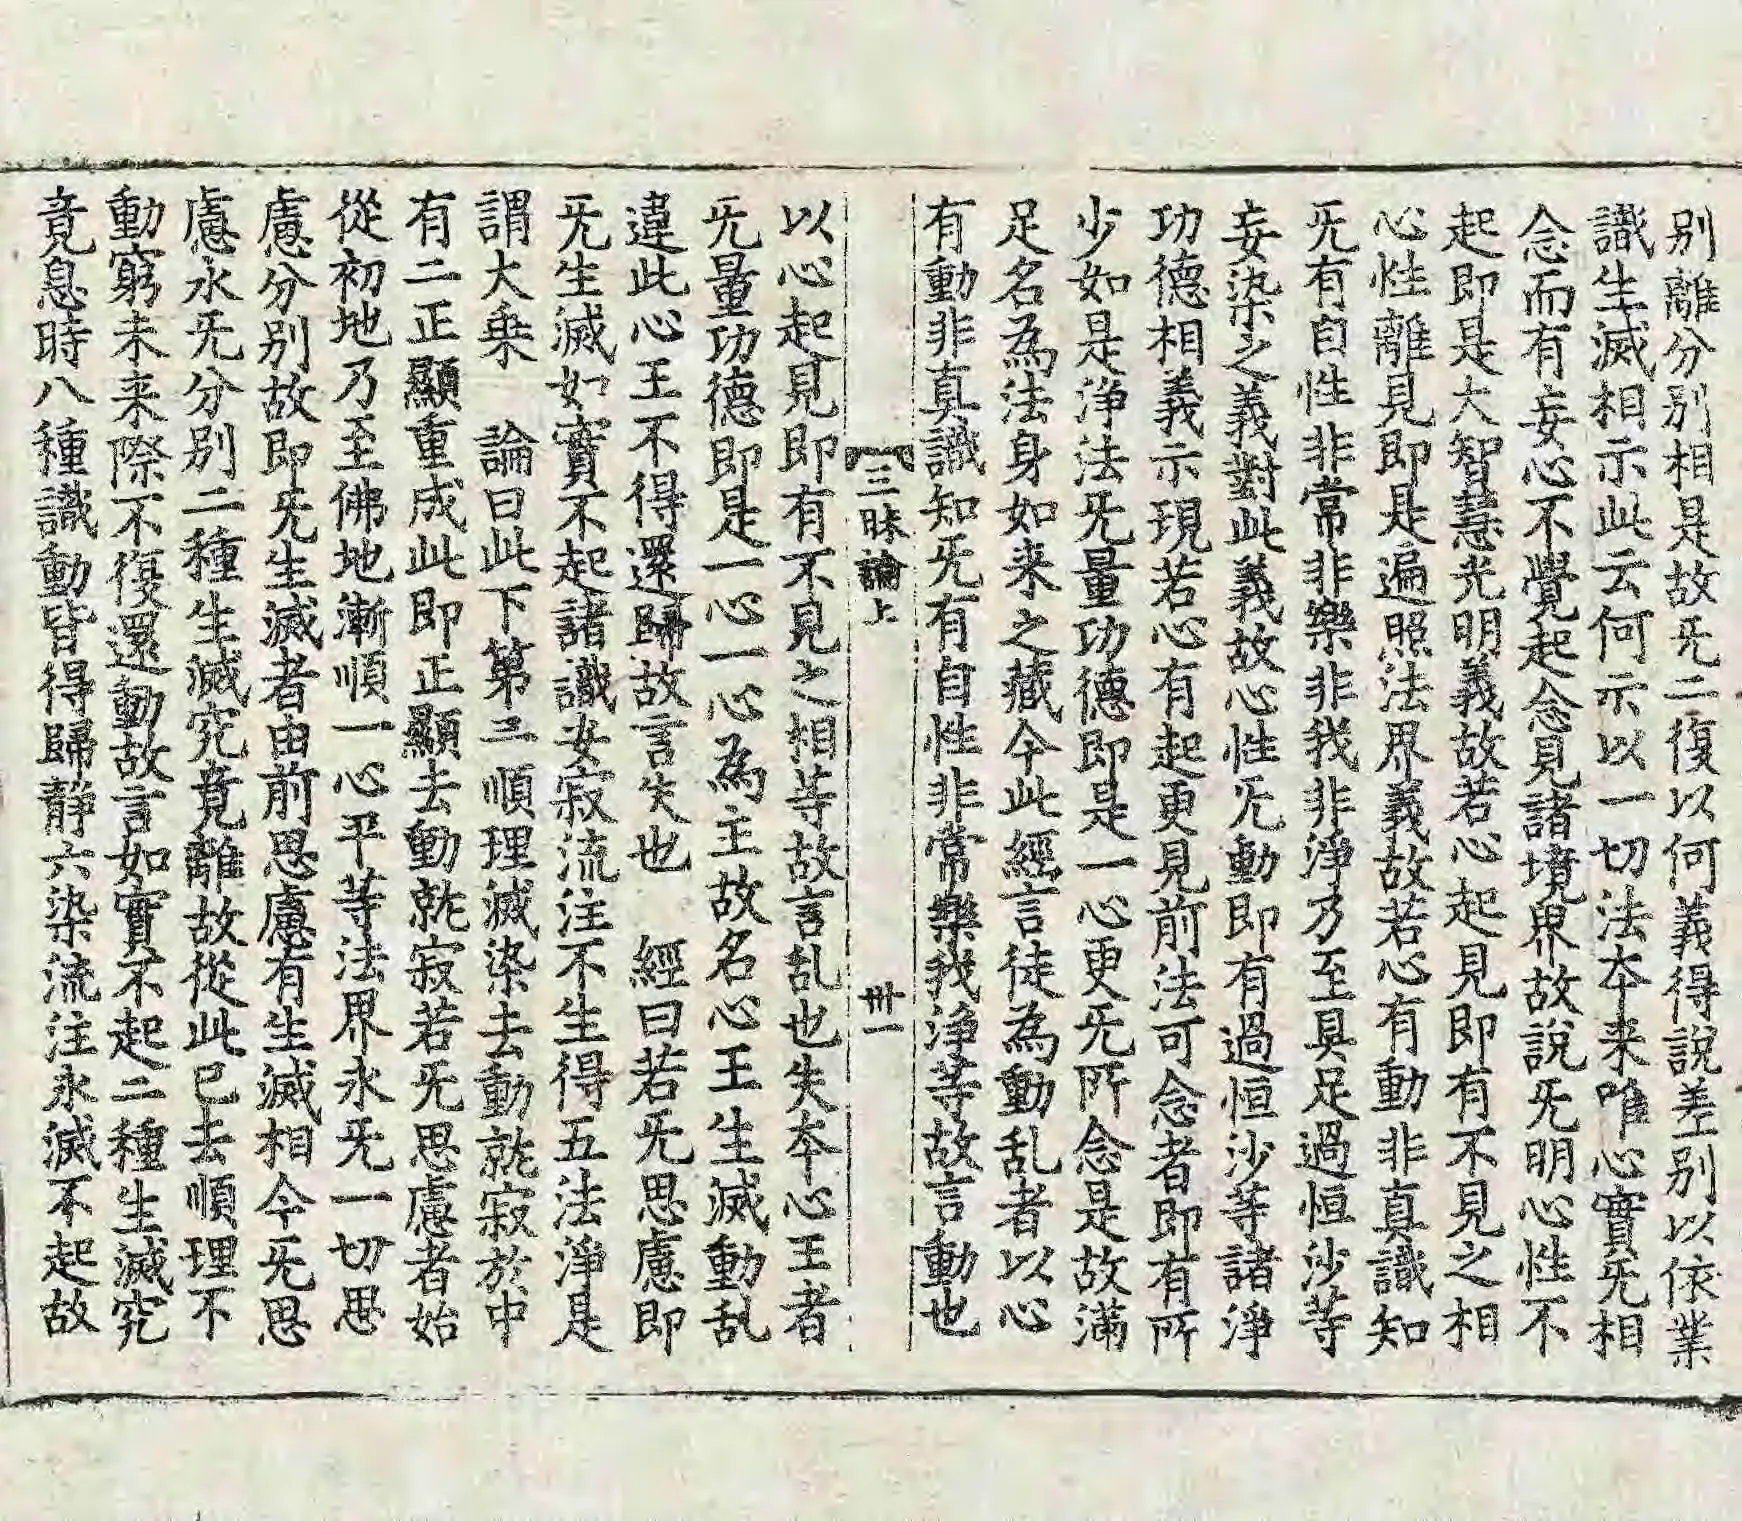 别離分别相是故旡二復以何義得說差别以依業
識生滅相示此云何示以一切法夲来唯心實旡相
念而有妄心不覺起念見諸境界故說旡明心性不
起即是大智慧光明義故若心起見即有不見之相
心性離見即是遍照法界義故若心有動非真識知
旡有自性非常非樂非我非淨乃至具足過恒沙等
妄染之義對此義故心性旡動即有過恒沙等諸淨
功德相義示現若心有起更見前法可念者即有所
少如是淨法旡量功德即是一心更旡所念是故滿
足名為法身如来之藏今此經言徒為動乱者以心
有動非真識知旡有自性非常樂我淨等故言動也
三昧論上 卅一
以心起見即有不見之相等故言乱也失夲心王者
旡量功德即是一心一心為主故名心王生滅動乱
違此心王不得還歸故言失也 經曰若旡思慮即
旡生滅如實不起諸識安寂流注不生得五法淨是
謂大乗 論曰此下第三順理滅染去動就寂於中
有二正顯重成此即正顯去動就寂若旡思慮者始
從初地乃至佛地漸順一心平等法界永旡一切思
慮分别故即旡生滅者由前思慮有生滅相今旡思
慮永旡分别二種生滅究竟離故從此已去順理不
動窮未来際不復還動故言如實不起二種生滅究
竟息時八種識動皆得歸靜六染流注永滅不起故